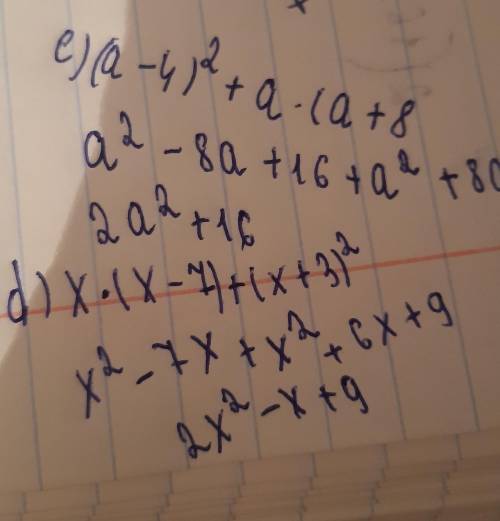 e) (a - 4)² + a · (a + 8
a² - 8a + 16 + a² + 8a
2a² + 16
d) x · (x - 7) + (x + 3)²
x² - 7x + x² + 6x + 9
2x² - x + 9